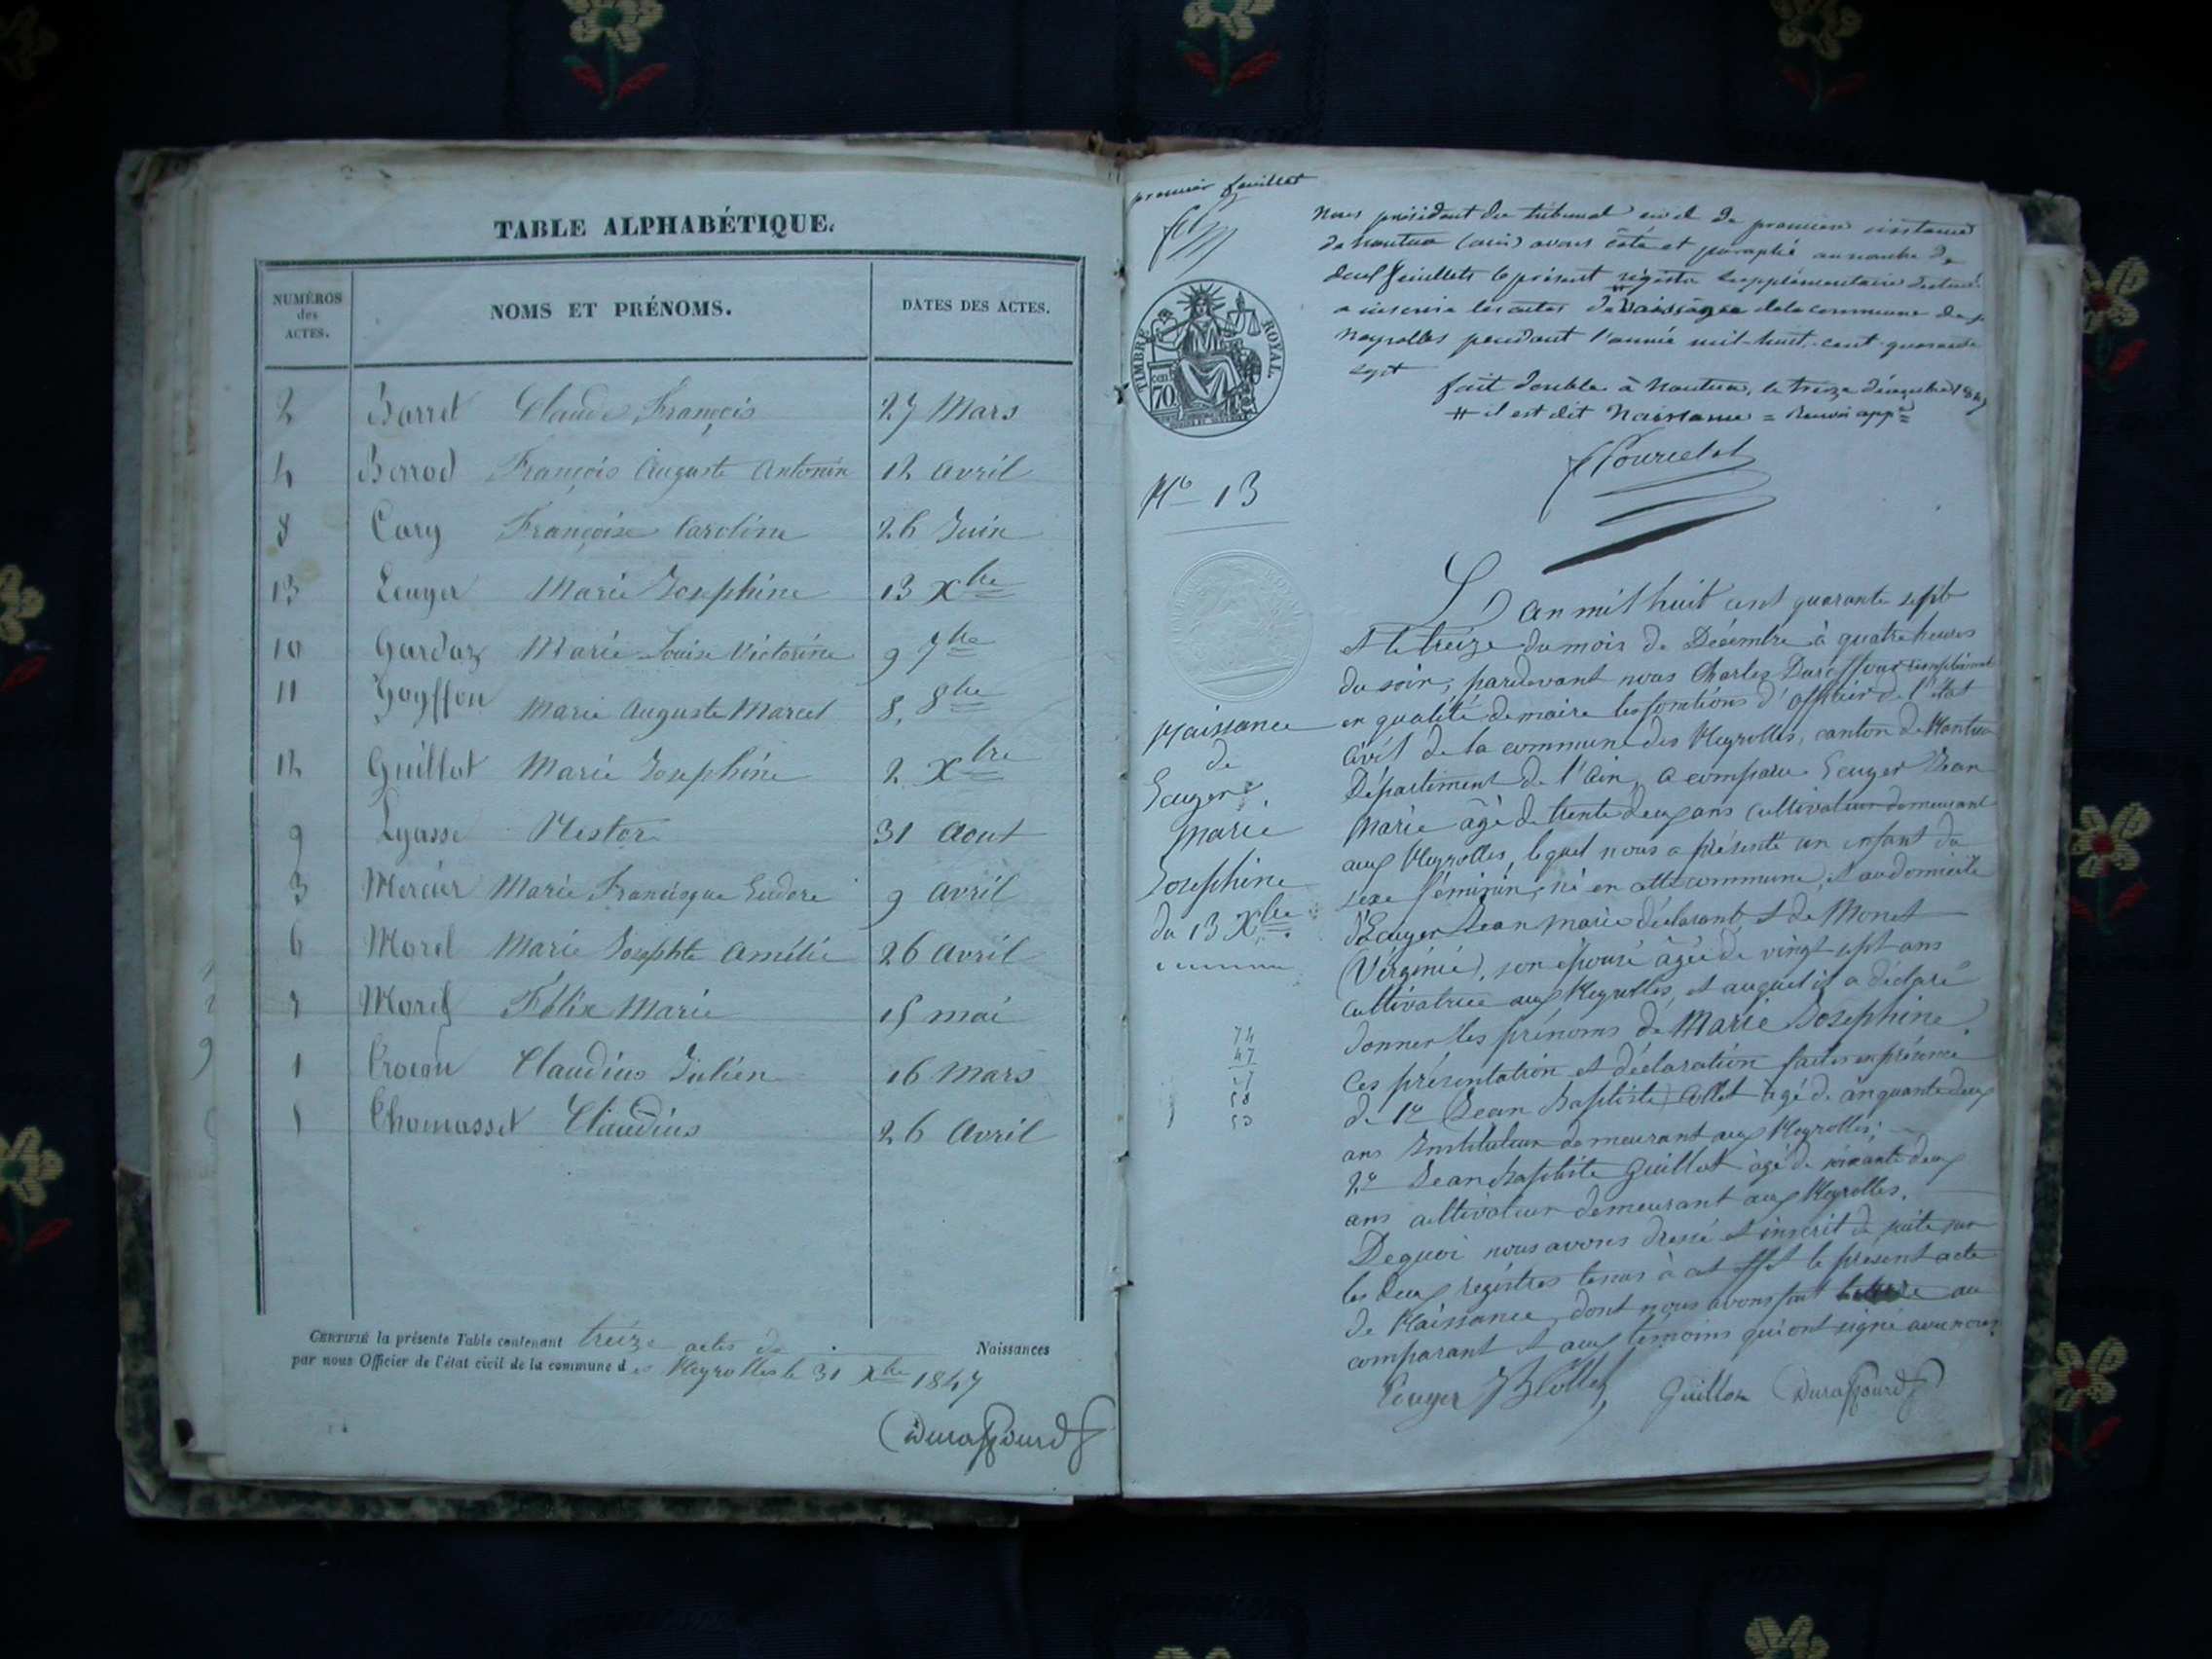 TABLE ALPHABÉTIQUE.
NUMÉROS des ACTES.
NOMS ET PRÉNOMS.
DATES DES ACTES.
2 Barret Claude François 27 Mars
4 Berrod François Auguste Antonin 12 Avril
8 Cary Françoise Caroline 26 Juin
13 Ecuyer Marie Josephine 13 Xbre
10 Gardaz Marie Louise Victorine 9 7bre
11 Goyffon Marie Auguste Marcel 8. 8bre
12 Guillot Marie Josephine 2 Xbre
9 Lyasse Nestor 31 Aout
3 Mercier Marie Francisque 9 Avril
6 Morel Marie Josephte Amélie 26 Avril
7 Morel Félix Marie 15 mai
1 Claudius Julien 16 Mars
5 Thomasset Claudius 26 Avril
CERTIFIÉ la présente Table contenant treize actes de Naissances
par nous Officier de l'état civil de la commune des Neyrolles le 31 Xbre 1847
Duraffourd
premier feuillet
Nous président du tribunal civil de premiere instance
de nantua (ain) avons coté et paraphé au nombre de
deux feuillets le présent registre supplémentaire destiné
a inscrire les actes de naissance de la commune des
Neyrolles pendant l'année mil-huit-cent-quarante
sept
fait double à Nantua, le treize décembre 1847
# il est dit Naissance = Renvoi appé
TIMBRE ROYAL.
70
No 13
L'an mil huit cent quarante sept
et le treize du mois de Décembre à quatre heures
du soir, pardevant nous Charles Duraffourd remplissant
en qualité de maire les fonctions d'officier de l'état
civil de la commune des Neyrolles, canton de Nantua
Département de l'Ain, a comparu Ecuyer Jean
Marie âgé de trente deux ans cultivateur demeurant
aux Neyrolles, lequel nous a présenté un enfant du
sexe féminin, né en cette commune, et au domicile
d'Ecuyer Jean Marie déclarant, et de Monet
(Virginie), son épouse âgée de vingt sept ans
cultivatrice aux Neyrolles, et auquel il a déclaré
donner les prénoms de Marie Josephine.
Ces présentation et déclaration faites en présence
de 1o (Jean Baptiste) Collet âgé de cinquante deux
ans Instituteur demeurant aux Neyrolles;
2o Jean Baptiste Guillot âgé de soixante deux
ans cultivateur demeurant aux Neyrolles.
De quoi nous avons dressé et inscrit de suite sur
les deux registres tenus à cet effet le présent acte
de Naissance, dont nous avons fait lecture au
comparant et aux témoins qui ont signé avec nous.
Ecuyer JB Collet Guillot Duraffourd
Naissance
de
Ecuyer
Marie
Josephine
du 13 Xbre
74
47
27
58
53